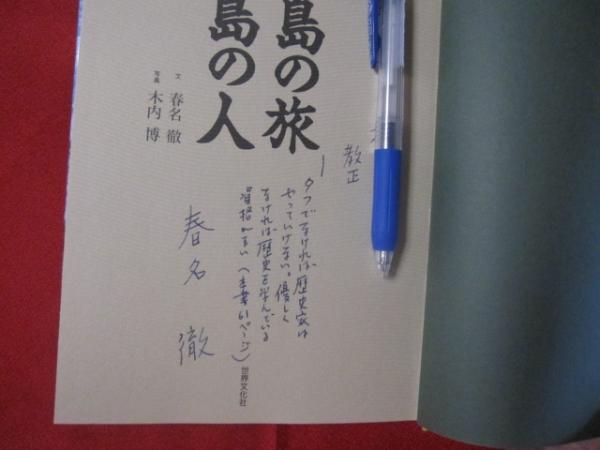 島の旅
島の人
文 春名 徹
写真 木内 博
敬正
タフでなければ歴史家は
やっていけない。優しく
なければ歴史を学んでいる
資格がない
春名 徹
世界文化社